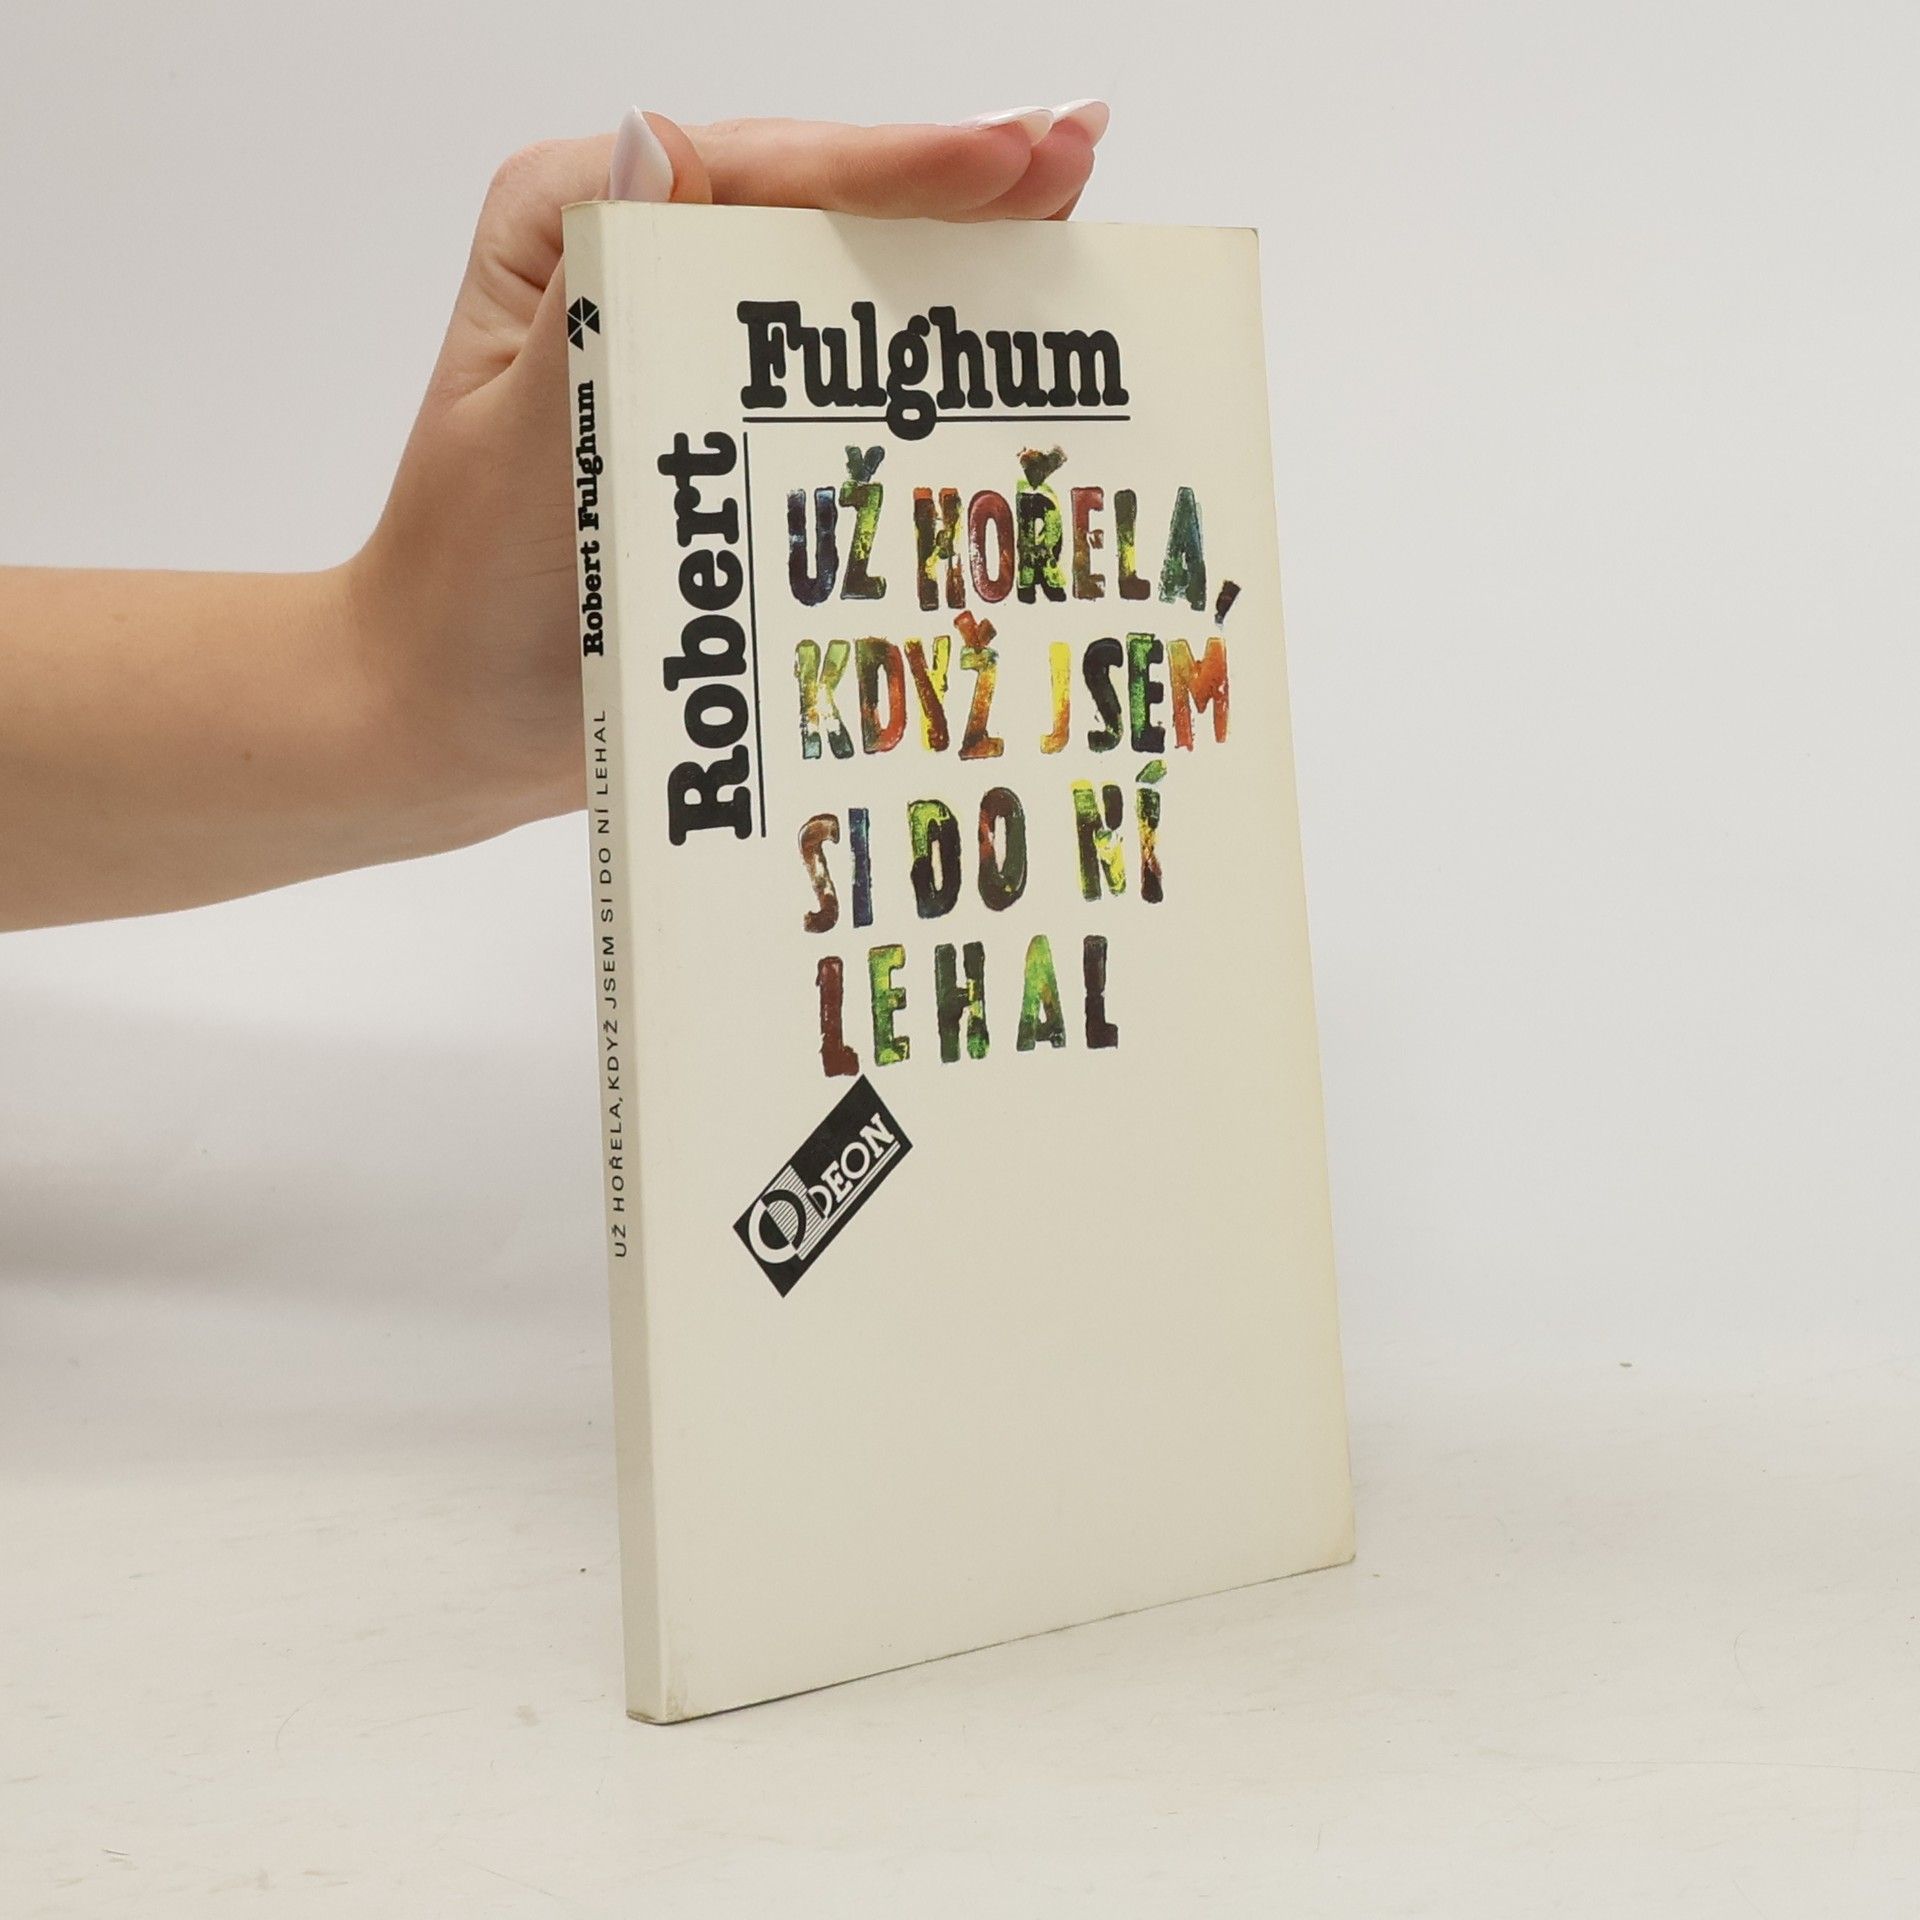 Robert Fulghum
UŽ HOŘELA, KDYŽ JSEM SI DO NÍ LEHAL
Robert
Fulghum
UŽ HOŘELA,
KDYŽ JSEM
SI DO NÍ
LEHAL
ODEON